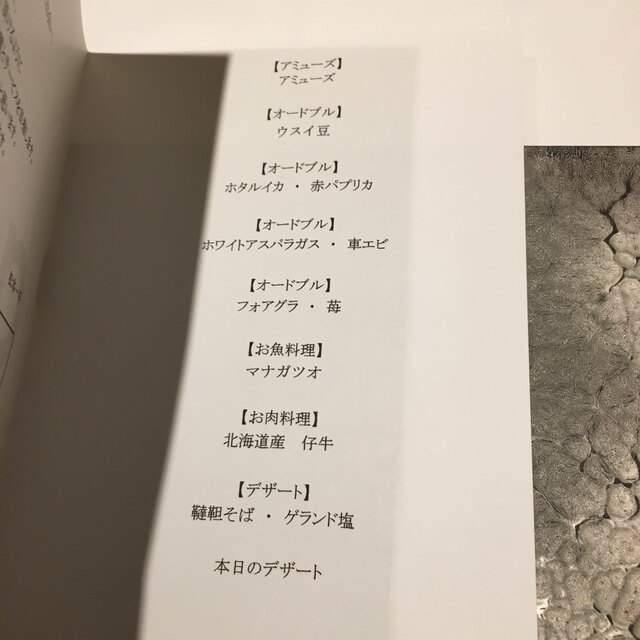 【アミューズ】
アミューズ
【オードブル】
ウスイ豆
【オードブル】
ホタルイカ ・ 赤パプリカ
【オードブル】
ホワイトアスパラガス ・ 車エビ
【オードブル】
フォアグラ ・ 苺
【お魚料理】
マナガツオ
【お肉料理】
北海道産　仔牛
【デザート】
韃靼そば ・ ゲランド塩
本日のデザート